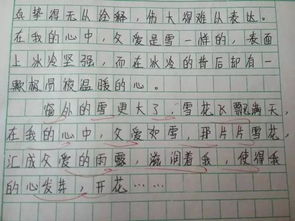 在我的心中，父爱是雪一样的，表面
上冰冷坚强，而在冰冷的背后却有一
颗极易被温暖的心。
窗外的雪更大了，雪花飞飘满天，
在我的心中，父爱如雪，那片片雪花，
汇成父爱的雨露，滋润着我，使得我
的心发芽，开花……